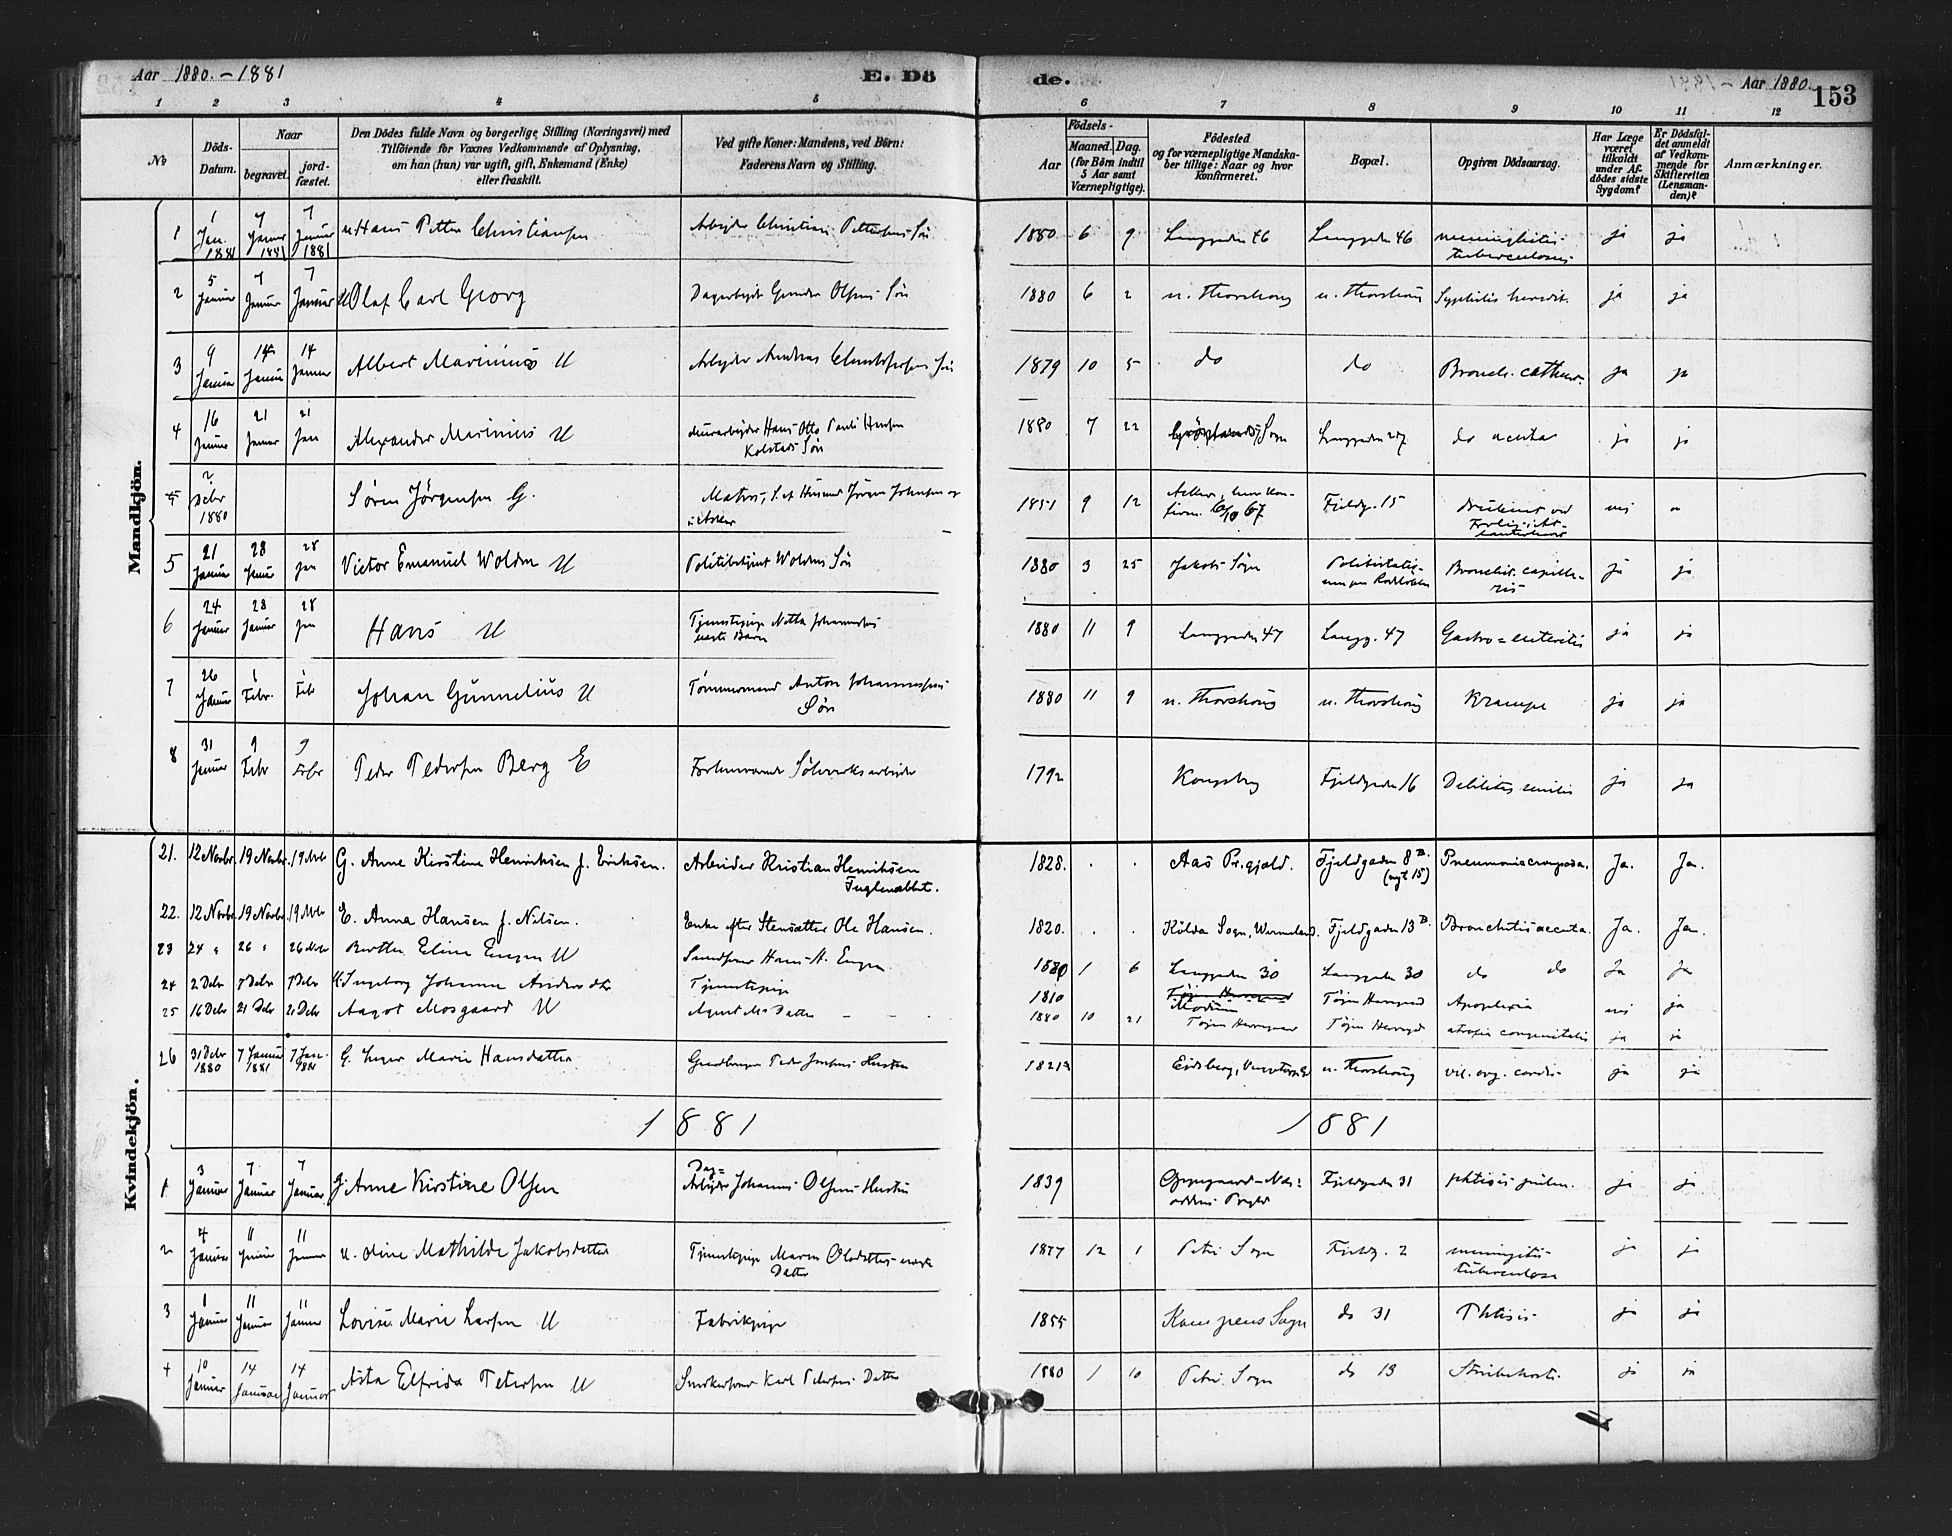 Aar 1880.-1881
E. Dö
de.
Aar 1880.
153
1 2 3 4 5 6 7 8 9 10 11 12
No
Döds-Datum.
Naar
begravet.
jord-fæstet.
Den Dödes fulde Navn og borgerlige Stilling (Næringsvei) med
Tilföiende for Voxnes Vedkommende af Oplysning,
om han (hun) var ugift, gift, Enkemand (Enke)
eller fraskilt.
Ved gifte Koner: Mandens, ved Börn:
Faderens Navn og Stilling.
Födsels-
Aar
Maaned. Dag.
(for Börn indtil
5 Aar samt
Værnepligtige).
Födested
og for værnepligtige Mandska-
ber tillige: Naar og hvor
konfirmeret.
Bopæl.
Opgiven Dödsaarsag.
Har Læge
været
tilkaldt
under Af-
dödes sidste
Sygdom?
Er Dödsfal-
det anmeldt
af Vedkom-
mende for
Skifteretten
(Lensman-
den)?
Anmærkninger.
Mandkjön.
1 1 Jan. 1881 7 Januar 1881 7 Januar 1881 u. Hans Petter Christiansen Arbeider Christian Pettersens Sön 1880 6 9 Langgaden 46 Langgaden 46 meninghitis tuberculosus ja ja
2 5 Januar 7 Januar 7 Januar U Olaf Carl Georg Dagarbeider Gunder Olsens Sön 1880 6 2 n. Thorshoug n. Thorshoug Syphilis heredit. ja ja
3 9 Januar 14 Januar 14 Januar Albert Marinius U Arbeider Andreas Christophersens Sön 1879 10 5 do do Bronch. cathar. ja ja
4 16 Januar 21 Januar 21 Jan Alexander Marinius U Murarbeider Hans Otto Pauli Hansen
Kolstads Sön 1880 7 22 Grönlands Sogn Langgaden 27 do acuta ja ja
5 2 Debr 1880 Sören Jörgensen G. Matros, S. af Husmd Jörgen Johnsen og
i Asker 1851 9 12 Asker, konfirm. 6/10 67 Fjeldg. 15 druknet ved Forlis i At-lanterhavet nei
5 21 Januar 28 Januar 28 Jan Victor Emanuel Wolden U Politibetjent Woldens Sön 1880 3 25 Jakobs Sogn Bronchit. capilla-ris ja ja
6 24 Januar 28 Januar 28 Jan Hans U Tjenestepige Netta Johannesens
uægte Barn 1880 11 9 Langgaden 47 Langg. 47 Gastro=enteritis ja ja
7 26 Januar 1 Febr. 1 Feb Johan Gunnelius U Tömmermand Anton Johannessens
Sön 1880 11 9 n. Thorshoug n. Thorshoug Krampe ja ja
8 31 Januar 9 Febr 9 Febr Peder Pedersen Berg E Forhenværende Sölvverksarbeider 1792 Kongsberg Fjeldgaden 16 Debilitas senilis ja ja
Kvindekjön.
21. 12 Novbr. 19 Novbr. 19 Nvbr G. Anne Kirstine Henriksen f. Eriksen. Arbeider Kristian Henriksen
Fuglenæbbet. 1828. . . Aas Pr.gjæld. Fjeldgaden 8 B.
(nyt 15) Pneumonia crouposa. Ja. Ja.
22. 12 Novbr. 19 Novbr. 19 Nvbr E. Anna Hansen f. Nilsen. Enke efter Stensætter Ole Hansen. 1820. . . Köla Sogn, Wermeland. Fjeldgaden 13 B. Bronchitis accuta. Ja. Ja.
23 24 " 26 " 26 Nvbr Berthe Eline Engen U Smedsvend Hans H. Engen 1880 1 6 Langgaden 30 Langgaden 30 do do Ja Ja
24 2 Debr 7 Debr 7 Debr U Ingeborg Johanne Andersdtr Tjenestepige 1810 Modum Töjen Hovedgd Apoplexia nei ja
25 16 Debr 21 Debr 21 Debr Aagot Mosgaard U Agent Ms Datter 1880 10 21 Töjen Hovedgaard Töjen Hovedgd atrofia congenitalis ja ja
26 31 Debr 1880 7 Januar 1881 7 Jan. 1881 G. Inger Marie Hansdatter Peder Jensens Hustru 1821 Eidsberg, n. Thorshoug vit. org. cordis ja ja
1881 1881
1 3 Januar 7 Januar 7 Januar G. Anne Kirstine Olsen Dag=
Arbejder Johannes Olsens Hustru 1839 Oppegaard-Næs=
oddens Prgld Fjeldgaden 31 phtisis pulm. ja ja
2 4 Januar 11 Januar 11 Januar u. Oline Mathilde Jakobsdatter Tjenestepige Maren Olsdatters uægte
Datter 1877 12 1 Petri Sogn Fjeldg. 2 meningitis
tuberculosa ja ja
3 1 Januar 11 Januar 11 Januar Lovise Marie Larsen U Fabrikpige 1855 Kampens Sogn do 31 Phtisis ja ja
4 10 Januar 14 Januar 14 Januar Asta Elfrida Petersen U Snedkersvend Karl Petersens Datter 1880 1 10 Petri Sogn do 13 Strubehoste ja ja